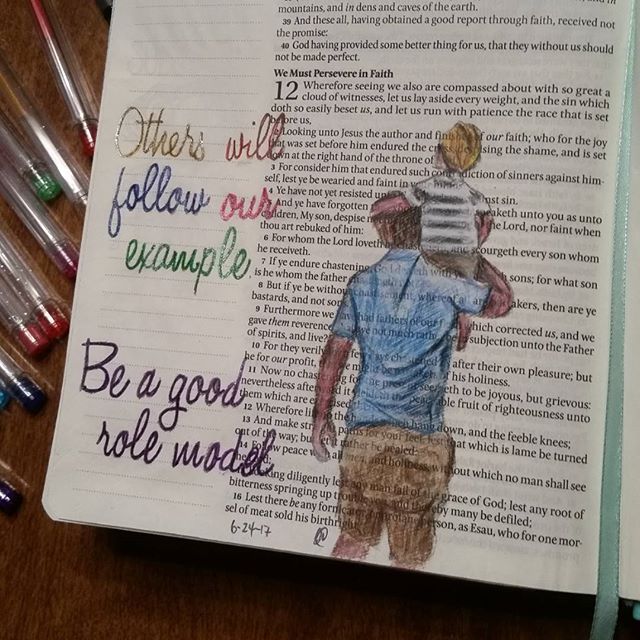 Others will
follow our
example
Be a good
role model
mountains, and in dens and caves of the earth.
39 And these all, having obtained a good report through faith, received not
the promise:
40 God having provided some better thing for us, that they without us should
not be made perfect.
We Must Persevere in Faith
12 Wherefore seeing we also are compassed about with so great a
cloud of witnesses, let us lay aside every weight, and the sin which
doth so easily beset us, and let us run with patience the race that is set
us,
ooking unto Jesus the author and of our faith; who for the joy
was set before him endured the sing the shame, and is set
at the right hand of the throne of
3 For consider him that endured such diction of sinners against him-
self, lest ye be wearied and faint
4 Ye have not yet resisted sin.
And ye have forgotten aketh unto you as unto
dren, My son, despise the Lord, nor faint when
thou art rebuked of him:
6 For whom the Lord loveth scourgeth every son whom
he receiveth.
7 If ye endure chastening, God dealeth with sons; for what son
is he whom the father
8 But if ye be without chastisement, whereof akers, then are ye
bastards, and not
9 Furthermore we have had fathers of our which corrected us, and we
gave them reverence: not subjection unto the Father
of spirits, and live?
10 For they verily after their own pleasure; but
he for our profit, of his holiness.
11 Now no to be joyous, but grievous:
nevertheless fruit of righteousness unto
them which are
12 Wherefore lift hang down, and the feeble knees;
13 And make paths for your feet, that which is lame be turned
out of the way; but let it rather be healed.
14 Follow peace all men, and holiness, without which no man shall
see
king diligently lest any man fail of the grace of God; lest any root of
bitterness springing up and thereby many be defiled;
16 Lest there be any person, as Esau, who for one mor-
sel of meat sold his birthright.
6-24-17